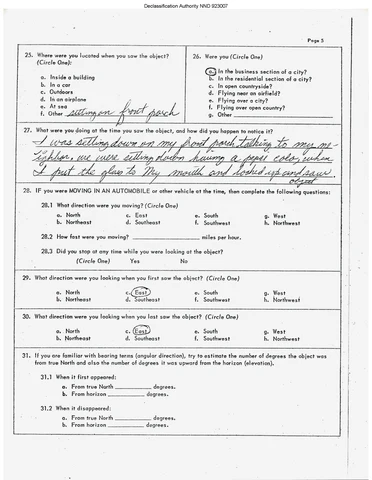 Declassification Authority NND 923007
Page 3
25. Where were you located when you saw the object?
(Circle One):
a. Inside a building
b. In a car
c. Outdoors
d. In an airplane
e. At sea
f. Other sitting on front porch
26. Were you (Circle One)
a. In the business section of a city?
b. In the residential section of a city?
c. In open countryside?
d. Flying near an airfield?
e. Flying over a city?
f. Flying over open country?
g. Other
27. What were you doing at the time you saw the object, and how did you happen to notice it?
I was sitting down on my front porch talking to my ne-
ighbor, we were sitting down having a pepsi cola, when
I put the glass to my mouth and looked up and saw
object
28. IF you were MOVING IN AN AUTOMOBILE or other vehicle at the time, then complete the following questions:
28.1 What direction were you moving? (Circle One)
a. North c. East e. South g. West
b. Northeast d. Southeast f. Southwest h. Northwest
28.2 How fast were you moving? miles per hour.
28.3 Did you stop at any time while you were looking at the object?
(Circle One) Yes No
29. What direction were you looking when you first saw the object? (Circle One)
a. North c. East e. South g. West
b. Northeast d. Southeast f. Southwest h. Northwest
30. What direction were you looking when you last saw the object? (Circle One)
a. North c. East e. South g. West
b. Northeast d. Southeast f. Southwest h. Northwest
31. If you are familiar with bearing terms (angular direction), try to estimate the number of degrees the object was
from true North and also the number of degrees it was upward from the horizon (elevation).
31.1 When it first appeared:
a. From true North degrees.
b. From horizon degrees.
31.2 When it disappeared:
a. From true North degrees.
b. From horizon degrees.